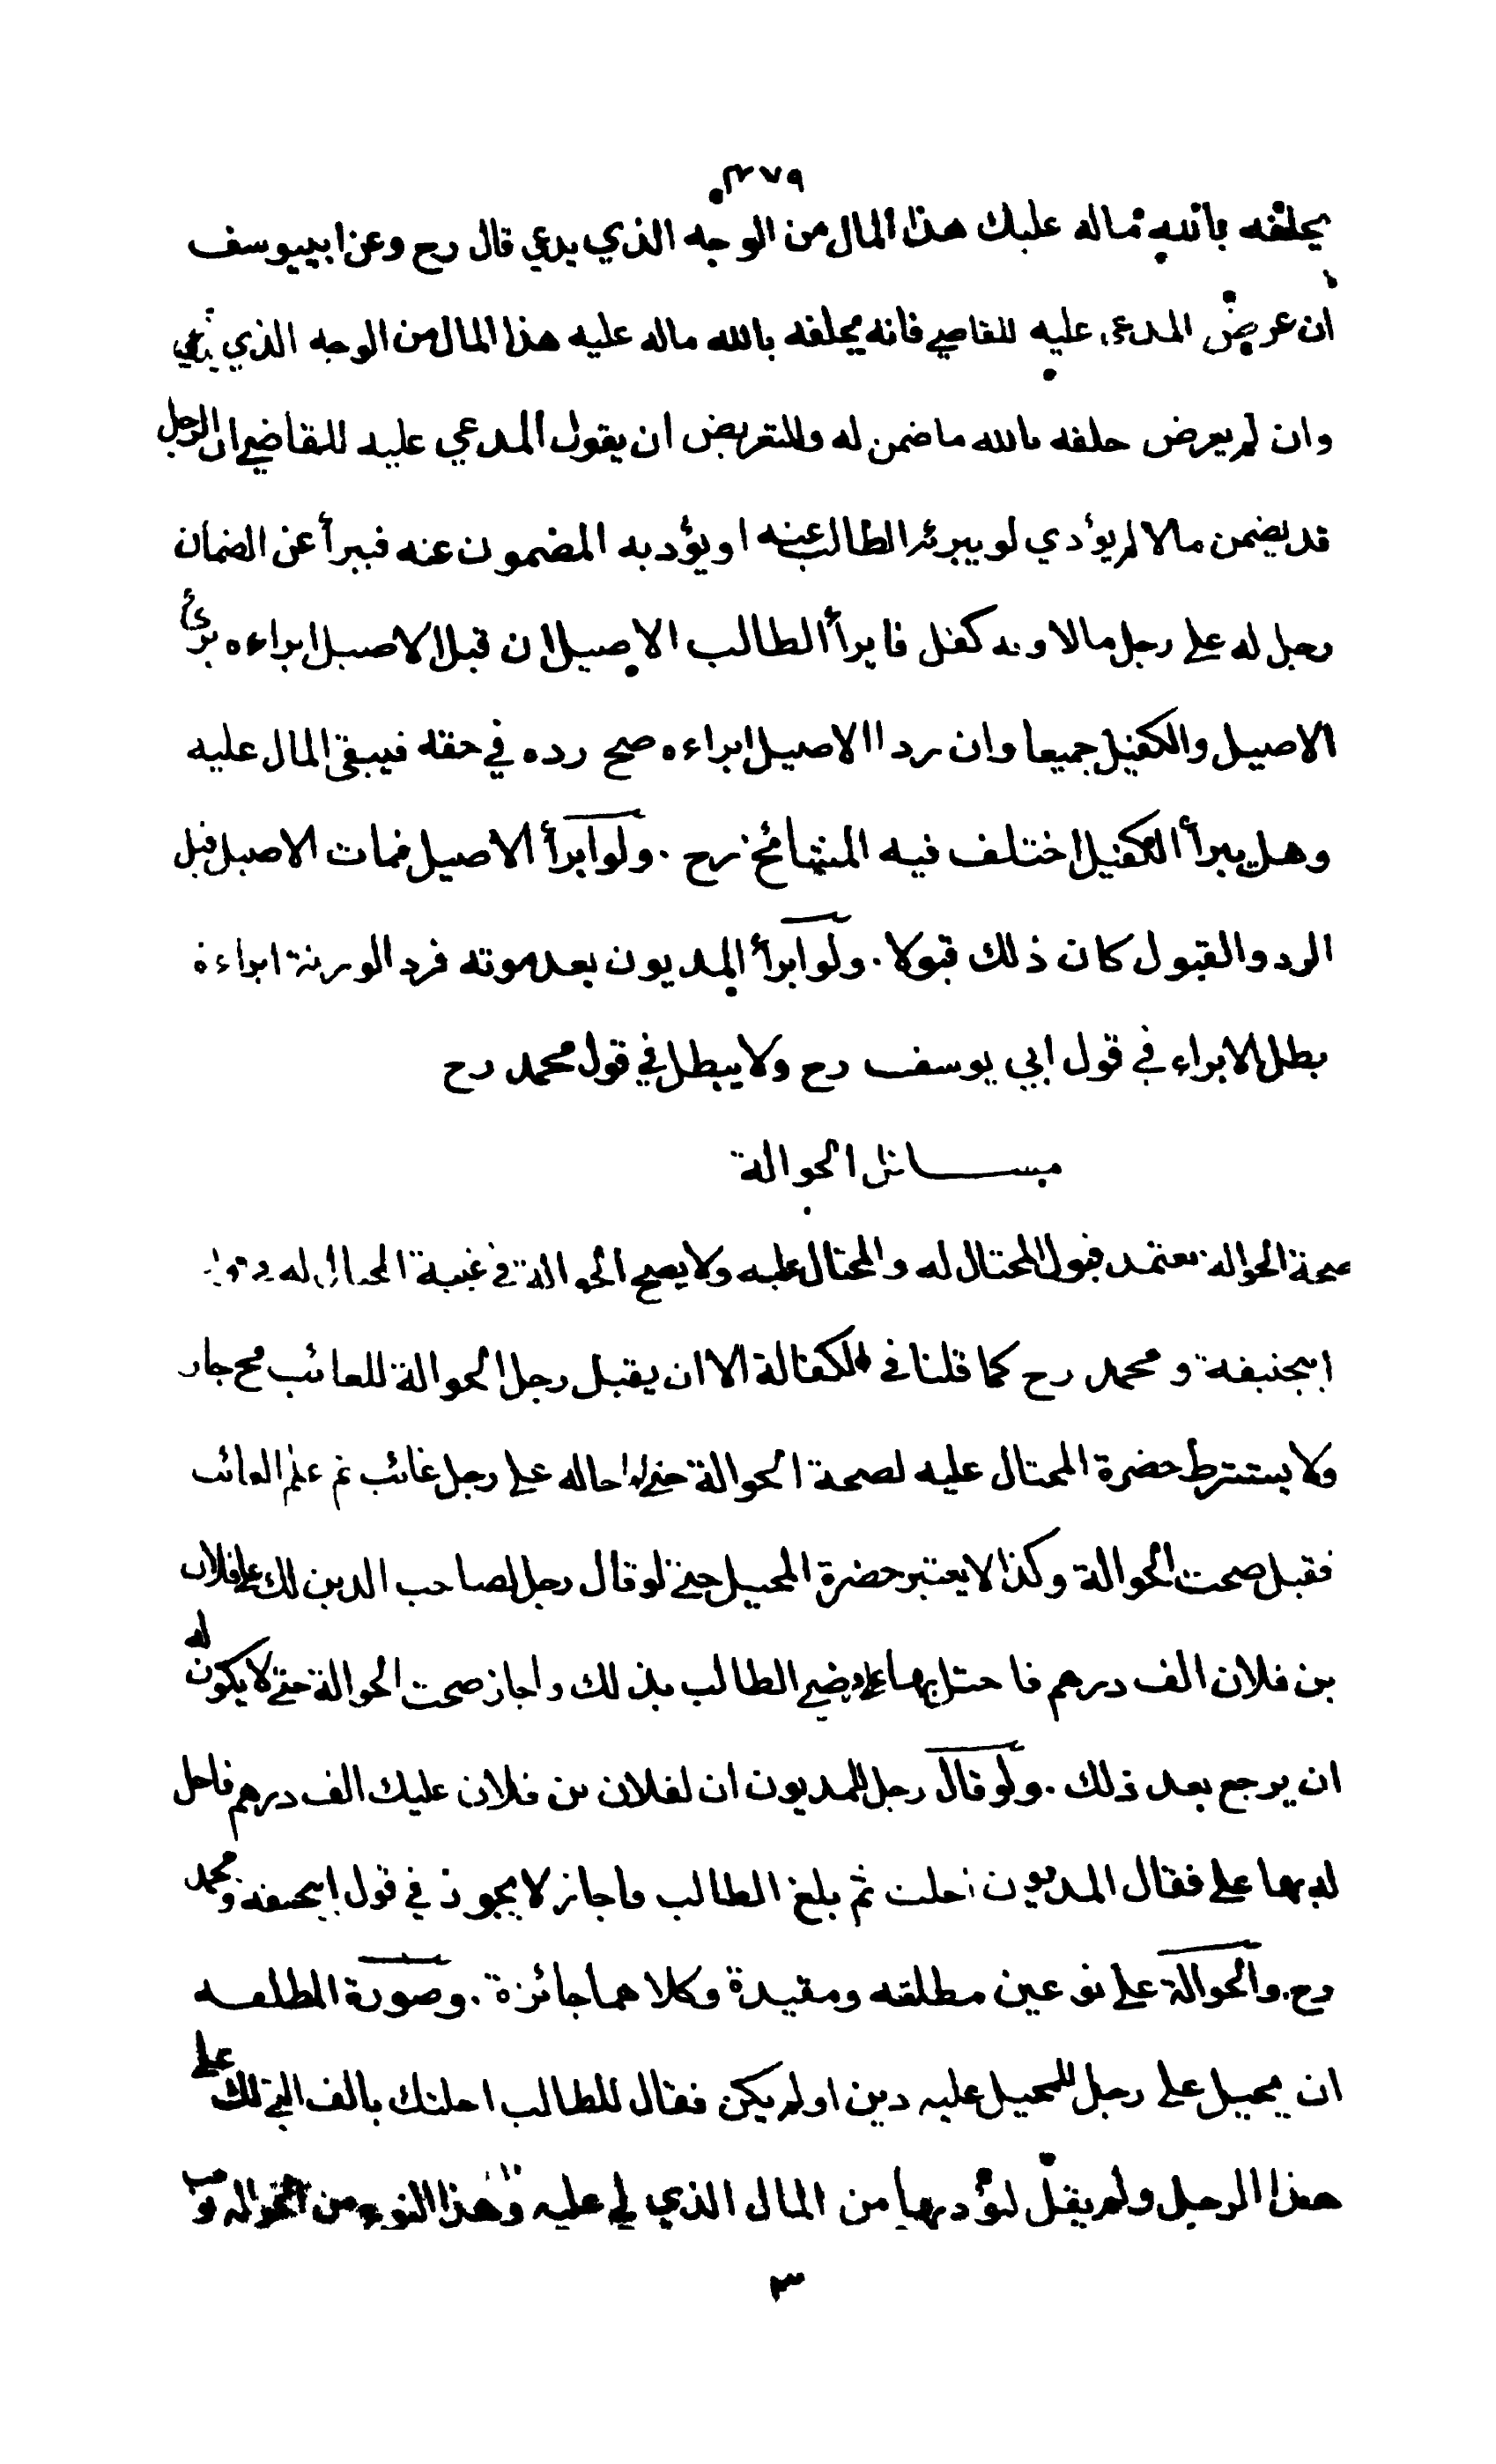 ٣٧٩
يحلفه بالله ماله عليك هذا المال من الوجه الذي يدعي قال رح وعن ابييوسف
ان عرض المدعى عليه للقاضي فانه يحلفه بالله ماله عليه هذا المال من الوجه الذي يدعي
وان لم يعرض حلفه بالله ما ضمن له وللتعريض ان يقول المدعي عليه للقاضي ان الرجل
قد يضمن مالا لم يؤدي لو يبرئه الطالب عنه او يؤديه المضمون عنه فيبرأ عن الضمان
رجل له على رجل مالا وبه كفل فابرأ الطالب الاصيل ان قبل الاصيل ابراءه برئ
الاصيل والكفيل جميعا وان رد االاصيل ابراءه صح رده في حقه فيبقى المال عليه
وهل يبرأ الكفيل اختلف فيه المشائخ رح . ولو ابرأ الاصيل فمات الاصيل قبل
الرد والقبول كان ذلك قبولا . ولو ابرأ المديون بعد موته فرد الورثة ابراءه
بطل الابراء في قول ابي يوسف رح ولا يبطل في قول محمد رح
مسائل الحوالة
صحة الحوالة تعتمد قبول المحتال له والمحتال عليه ولا يصح الحوالة في غيبة المحتال له
ابيحنيفة و محمد رح كما قلنا في الكفالة الا ان يقبل رجل الحوالة للغائب
ولا يشترط حضرة المحتال عليه لصحة الحوالة حتى لو احاله على رجل غائب ثم علم الغائب
فقبل صحت الحوالة وكذا لا يعتبر حضرة المحيل حتى لو قال رجل لصاحب الدين لك على فلان
بن فلان الف درهم فاحتل بها على ورضي الطالب بذلك واجاز صحت الحوالة حتى لا يكون له
ان يرجع بعد ذلك . ولو قال رجل للمديون ان لفلان بن فلان عليك الف درهم فاحل
له بها على فقال المديون احلت ثم بلغ الطالب فاجاز لا يجوز في قول ابيحنيفة ومحمد
رح . والحوالة على نوعين مطلقه ومقيدة وكلاهما جائزة . وصورة المطلقه
ان يحيل على رجل للمحيل عليه دين او لم يكن فقال للطالب احلتك بالف التي لك على
هذا الرجل ولم يقل لتؤديها من المال الذي لي عليه وهذا النوع من الحواله
٣